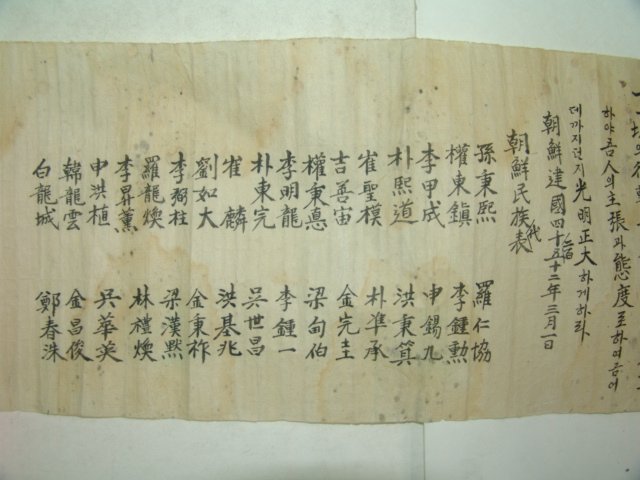 하야 吾人의 主張과 態度로 하여금 어
데까지던지 光明正大하게하라
朝鮮建國四千二百五十二年三月一日
朝鮮民族代表
孫秉熙
權東鎭
李甲成
朴熙道
崔聖模
吉善宙
權秉悳
李明龍
朴東完
崔麟
劉如大
李弼柱
羅龍煥
李昇薰
申洪植
韓龍雲
白龍城
羅仁協
李鍾勳
申錫九
洪秉箕
朴準承
金完圭
梁甸伯
李鍾一
吳世昌
洪基兆
金秉祚
梁漢默
林禮煥
吳華英
金昌俊
鄭春洙